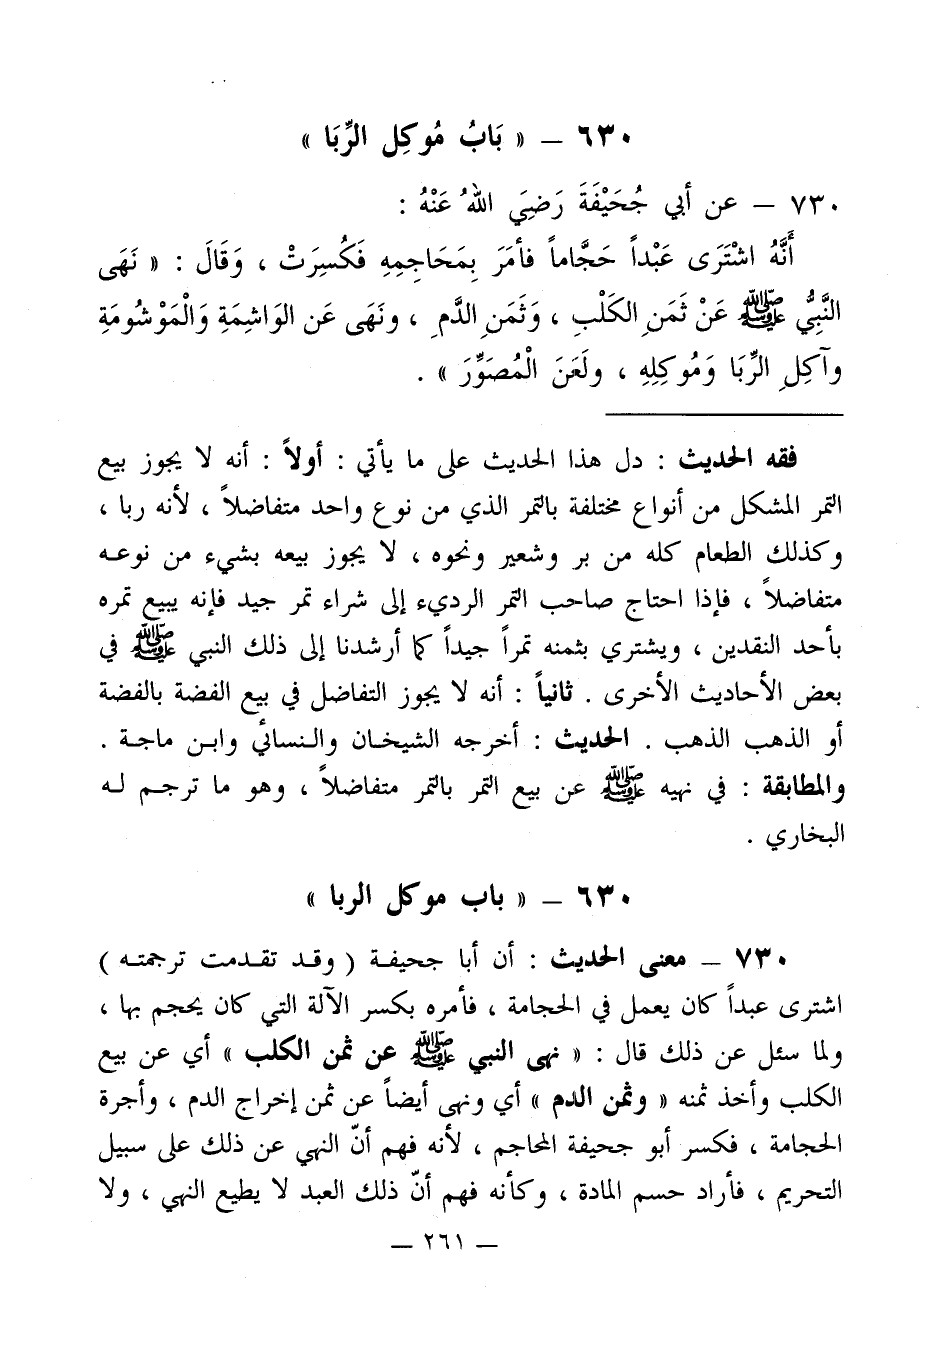 ٦٣٠ – « بَابُ مُوكِلِ الرِّبَا »
٧٣٠ – عن أبي جُحَيْفَةَ رَضِيَ اللهُ عَنْهُ :
أَنَّهُ اشْتَرَى عَبْداً حَجَّاماً فأمَرَ بِمَحَاجِمِهِ فَكُسِرَتْ ، وَقَالَ : « نَهَى
النَّبِيُّ ﷺ عَنْ ثَمَنِ الكَلْبِ ، وَثَمَنِ الدَّمِ ، ونَهَى عَنِ الوَاشِمَةِ وَالْمَوْشُومَةِ
وآكِلِ الرِّبَا وَمُوكِلِهِ ، ولَعَنَ الْمُصَوِّرَ » .
فقه الحديث : دل هذا الحديث على ما يأتي : أولاً : أنه لا يجوز بيع
التمر المشكل من أنواع مختلفة بالتمر الذي من نوع واحد متفاضلاً ، لأنه ربا ،
وكذلك الطعام كله من بر وشعير ونحوه ، لا يجوز بيعه بشيء من نوعه
متفاضلاً ، فإذا احتاج صاحب التمر الرديء إلى شراء تمر جيد فإنه يبيع تمره
بأحد النقدين ، ويشتري بثمنه تمراً جيداً كما أرشدنا إلى ذلك النبي ﷺ في
بعض الأحاديث الأخرى . ثانياً : أنه لا يجوز التفاضل في بيع الفضة بالفضة
أو الذهب الذهب . الحديث : أخرجه الشيخان والنسائي وابن ماجة .
والمطابقة : في نهيه ﷺ عن بيع التمر بالتمر متفاضلاً ، وهو ما ترجم له
البخاري .
٦٣٠ – « باب موكل الربا »
٧٣٠ – معنى الحديث : أن أبا جحيفة ( وقد تقدمت ترجمته )
اشترى عبداً كان يعمل في الحجامة ، فأمره بكسر الآلة التي كان يحجم بها ،
ولما سئل عن ذلك قال : « نهى النبي ﷺ عن ثمن الكلب » أي عن بيع
الكلب وأخذ ثمنه « وثمن الدم » أي ونهى أيضاً عن ثمن إخراج الدم ، وأجرة
الحجامة ، فكسر أبو جحيفة المحاجم ، لأنه فهم أنّ النهي عن ذلك على سبيل
التحريم ، فأراد حسم المادة ، وكأنه فهم أنّ ذلك العبد لا يطيع النهي ، ولا
– ٢٦١ –